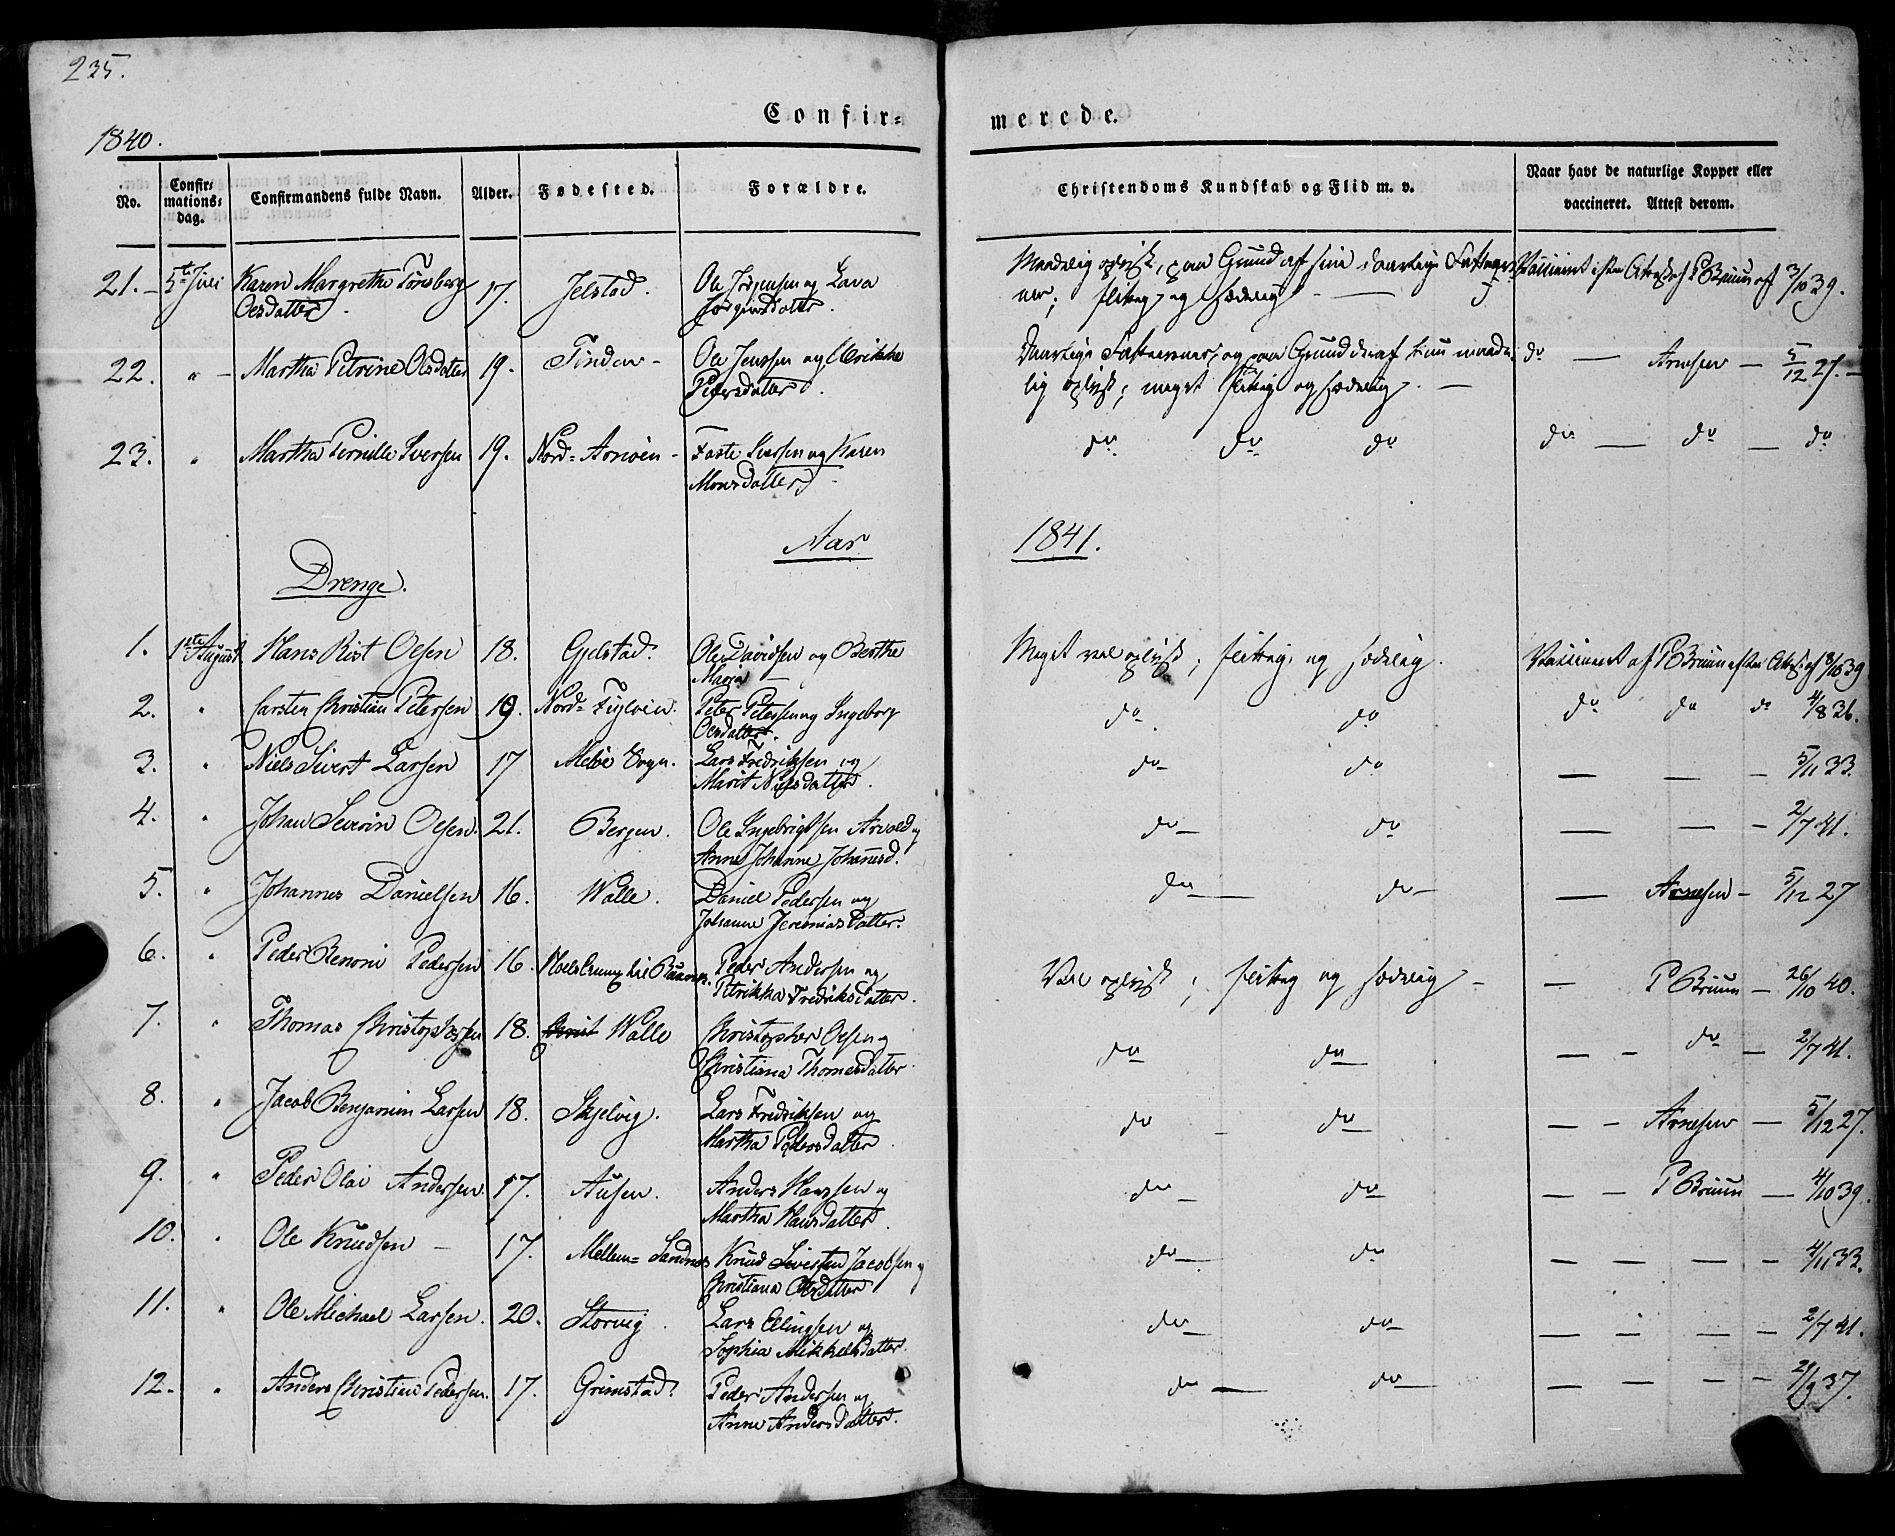 235.
Confir= merede.
1840.
No. Confir= mations= dag. Confirmandens fulde Navn. Alder. Fødested. Forældre. Christendoms Kundskab og Flid m. v. Naar havt de naturlige Kopper eller vaccineret. Attest derom.
21. 5te Juli Karen Margrethe Tønsberg 17. Jelstad. Ole Jørgensen og Lava Maadelig oplyst, paa Grund af sine daarlige P Bruun af 3/10 39.
Olsdatter. Jørgensdatter. ner; flittig og sædelig
22. " Martha Petrine Olsdatter 19. Tinden Ole Jenssen og Ulrikke Daarlige og paa Grund deraf kun maade= do — Arnesen — 5/12 27.
Petersdatter. lig oplyst; meget flittig og sædelig. —
23. " Martha Pernille Iversen 19. Nord= Arnøen Faste Iversen og Karen do do do do — do — do
Monsdatter
Aar 1841.
Drenge.
1. 1ste August Hans Rist Olsen 18. Gjelstad. Ole Davidsen og Berthe Meget vel oplyst; flittig og sædelig. Vaccineret af P Bruun efter Attest af 3/10 39
Maria
2. " Carsten Christian Petersen 19. Nord= Peter Petersen og Ingeborg do do do do do 4/8 36.
Olsdatter.
3. " Niels Sivert Larsen 17 Melø Sogn. Lars Fredriksen og do do — — — 5/11 33.
Marit Nielsdatter.
4. " Johan Severin Olsen. 21. Bergen. Ole Ingebrigtsen Arvold og do do — — — 2/7 41.
Anne Johanne Johannesd.
5. " Johannes Danielsen 16. Walle. Daniel Pedersen og do do — Arnesen — 5/12 27
Johanne Jeremiasdatter.
6. " Peder Benoni Pedersen 16. Peder Andersen og Vel oplyst; flittig og sædelig — — P Bruun — 26/10 40.
Petrikka Fredriksdatter.
7. " Thomas Christophersen 18. Walle Christopher Olsen og do do — — do — 2/7 41.
Christiana Thomasdatter.
8. " Jacob Benjamin Larsen 18. Skjelvig. Lars Fredriksen og do do — — Arnesen — 5/12 27.
Martha Pedersdatter
9. " Peder Olai Andersen. 17. Ausen. Anders Hanssen og do do — — P Bruun — 4/10 39.
Martha Hansdatter.
10. " Ole Knudsen — 17. Mellem= Sandnes Knud Sivertsen Jacobsen og do do — — — — 4/11 33.
Christiana Olsdatter
11. " Ole Michael Larsen. 20. Storvig. Lars Ellingsen og do do — — — — 2/7 41.
Sophia Mikkelsdatter.
12. " Anders Christian Pedersen. 17. Grimstad. Peder Andersen og do do — — — — 29/9 37.
Anne Andersdatter.